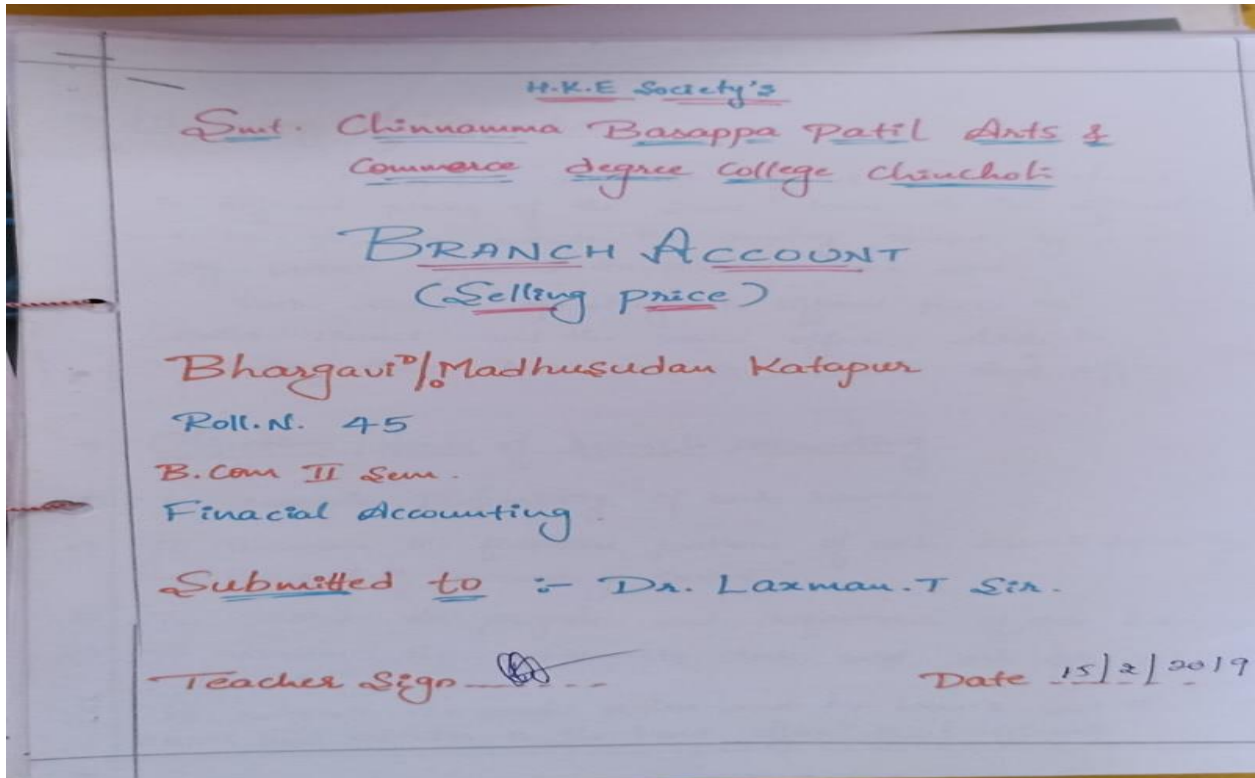 H.K.E Society's
Smt. Chinnamma Basappa Patil Arts &
Commerce degree College Chincholi
BRANCH ACCOUNT
(Selling price)
Bhargavi D/o Madhusudan Katapur
Roll.N. 45
B.Com II Sem.
Finacial Accounting.
Submitted to :- Dr. Laxman.T Sir.
Teacher Sign
Date 15/2/2019